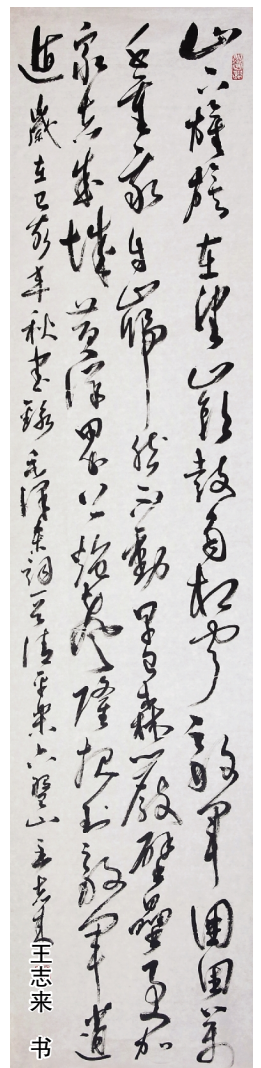 山下旌旗在望山头鼓角相闻敌军围困万
千重我自岿然不動早已森严壁壘更加
众志成城黄洋界上炮声隆报道敌军宵
遁 歲在己亥年秋书錄毛泽东词一首清平乐六盘山王志来
王志来 书